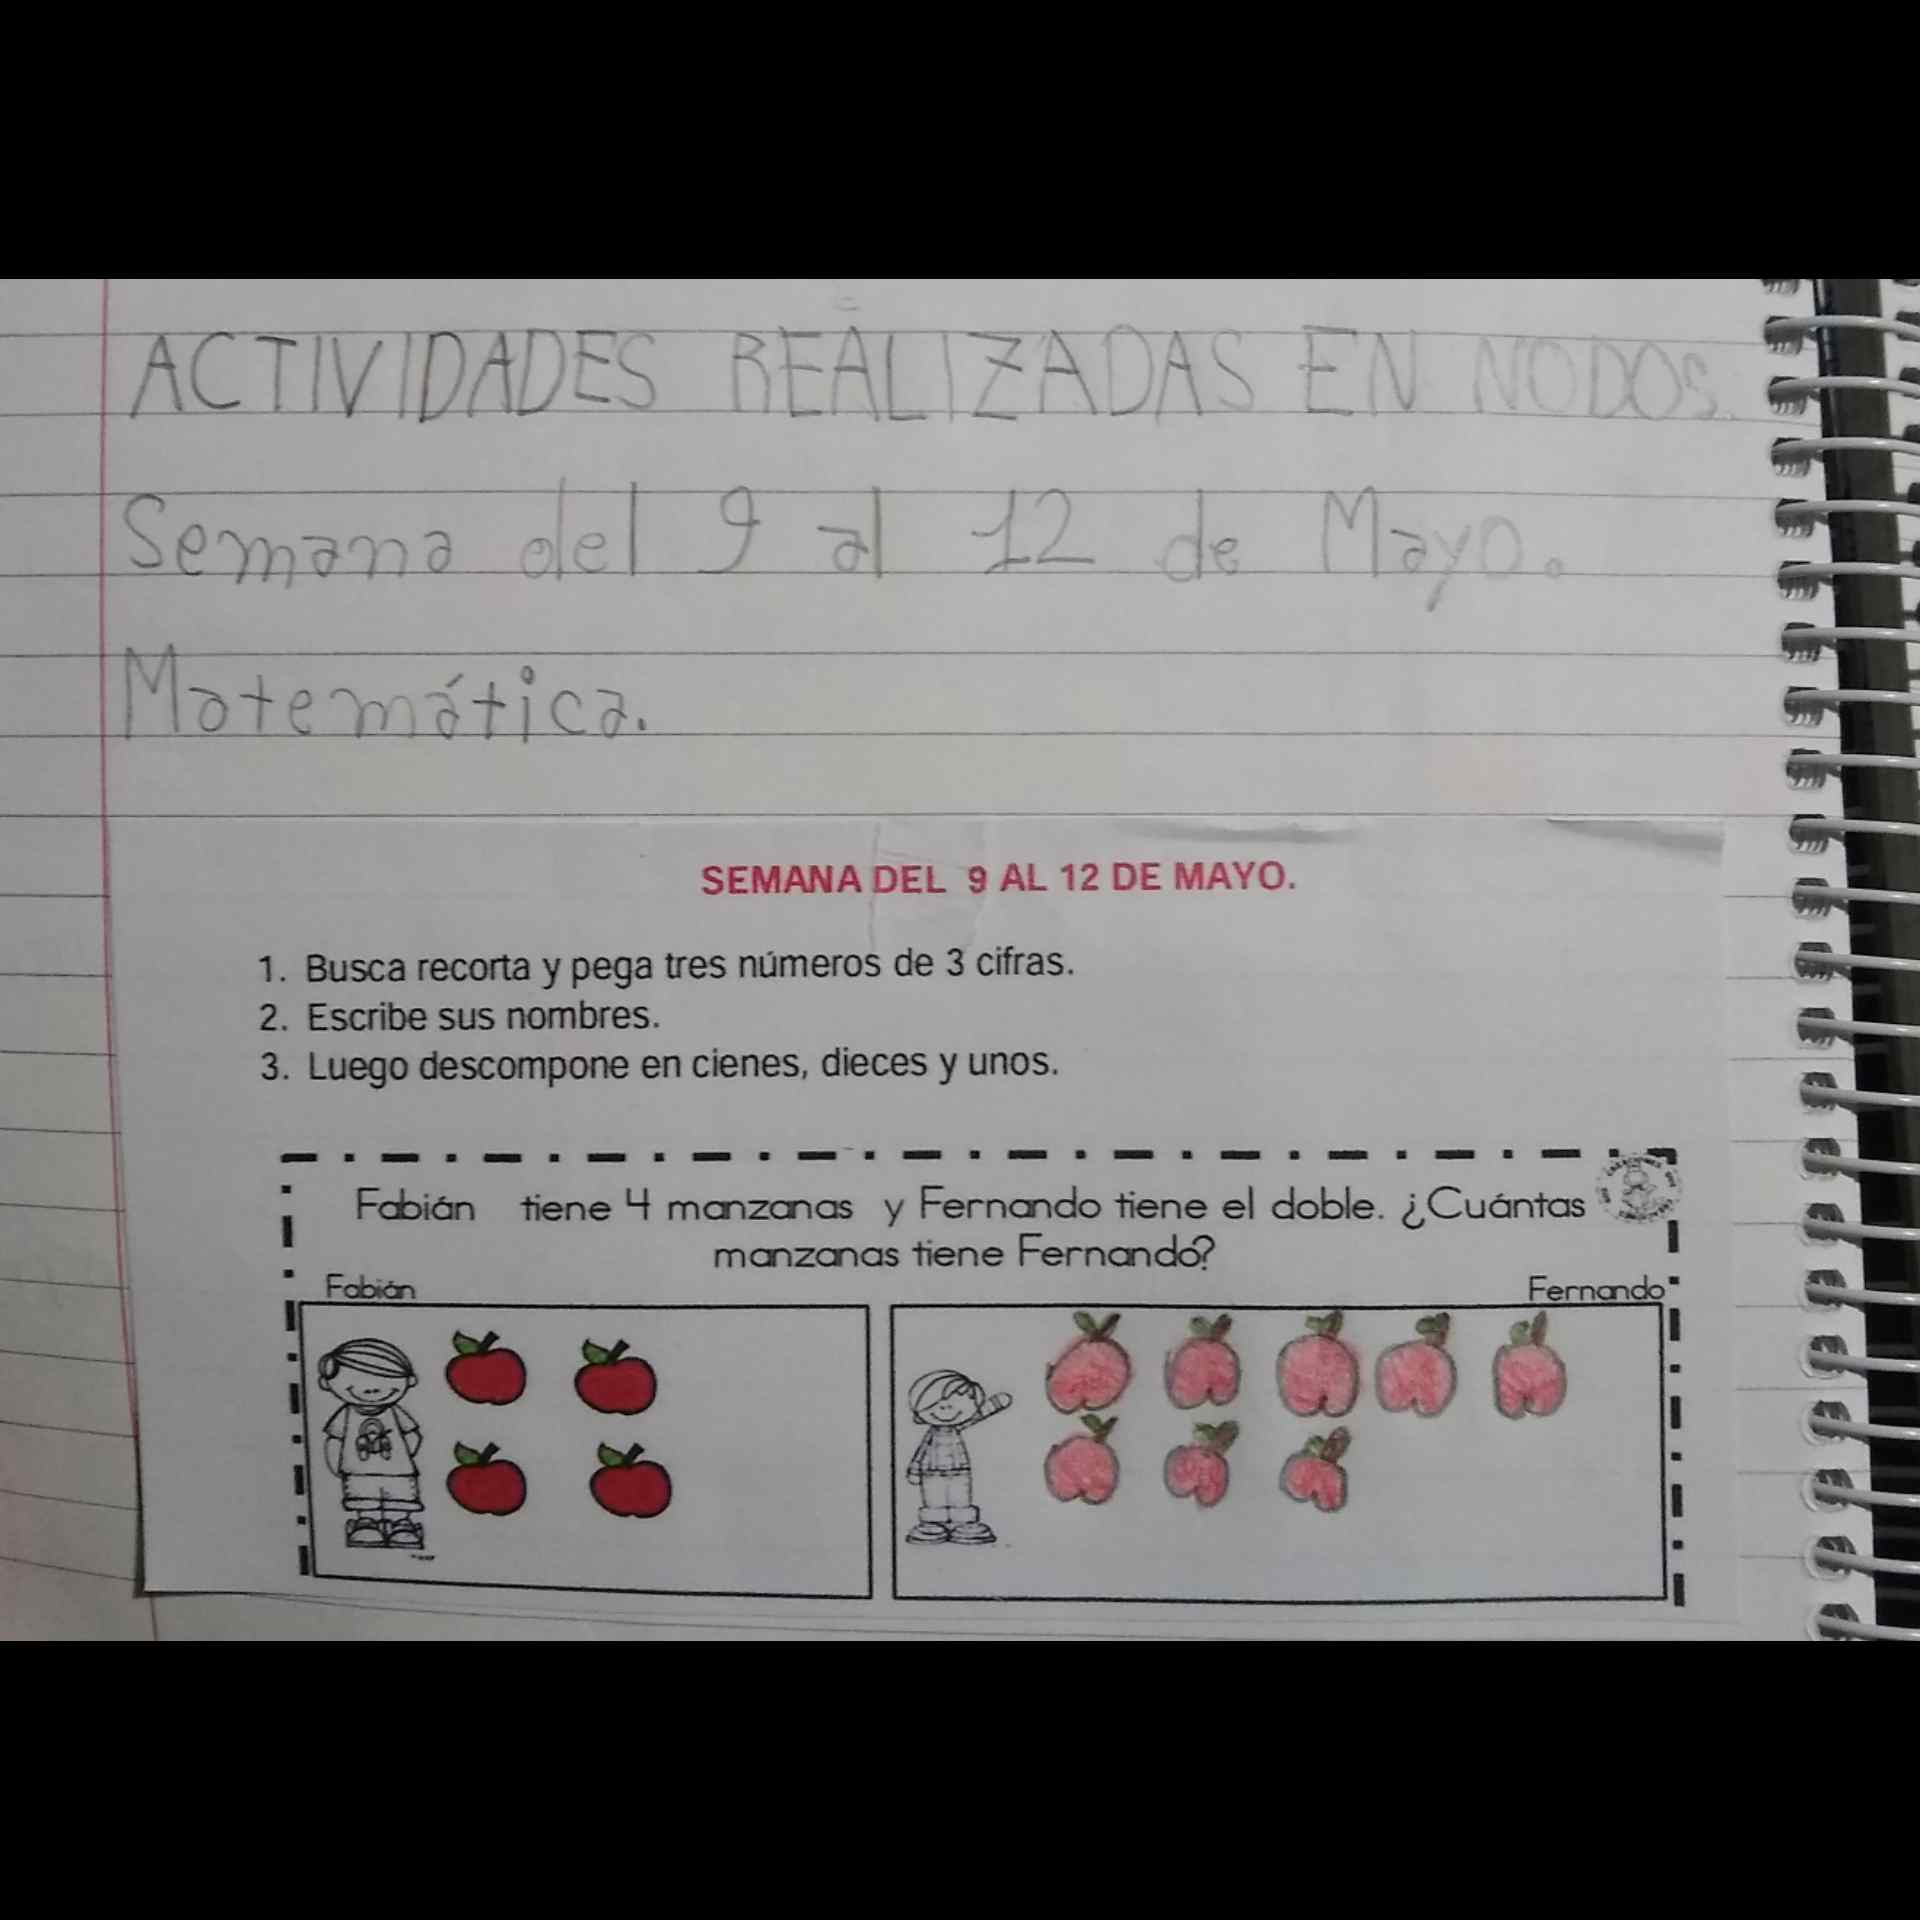 ACTIVIDADES REALIZADAS EN NODOS.
Semana del 9 al 12 de Mayo.
Matemática.
SEMANA DEL 9 AL 12 DE MAYO.
1. Busca recorta y pega tres números de 3 cifras.
2. Escribe sus nombres.
3. Luego descompone en cienes, dieces y unos.
Fabián tiene 4 manzanas y Fernando tiene el doble. ¿Cuántas
manzanas tiene Fernando?
Fabián
Fernando